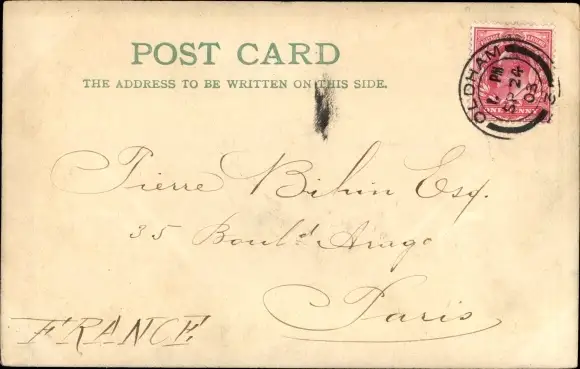 POST CARD
THE ADDRESS TO BE WRITTEN ON THIS SIDE.
OLDHAM
PM
SP 24
03
ONE PENNY
Pierre Bihin Esq.
35 Boul.d Arago
Paris
FRANCE